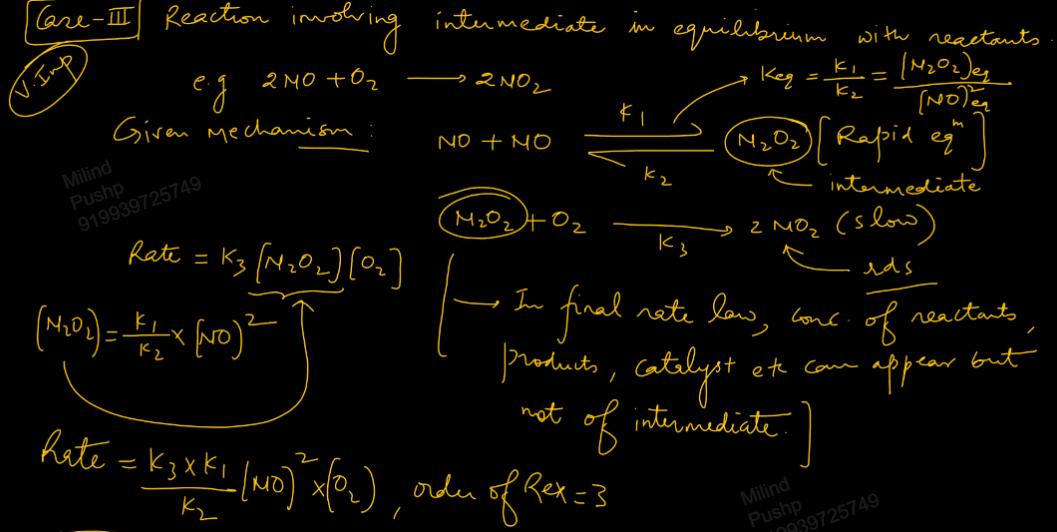 Case-III Reaction involving intermediate in equilibrium with reactants.
V.Imp
e.g 2NO + O2 ⟶ 2NO2
Keq = K1/K2 = [N2O2]eq/[NO]²eq
Given Mechanism :
NO + NO ⇌ N2O2 [Rapid eqᵐ]
K1
K2
intermediate
N2O2 + O2 ⟶ 2NO2 (slow)
K3
rds
Rate = K3 [N2O2] [O2]
[N2O2] = K1/K2 × [NO]²
→ In final rate law, conc. of reactants,
products, catalyst etc can appear but
not of intermediate.]
Rate = K3 × K1/K2 [NO]² × [O2], order of Rex = 3
Milind
Pushp
919939725749
Milind
Pushp
919939725749